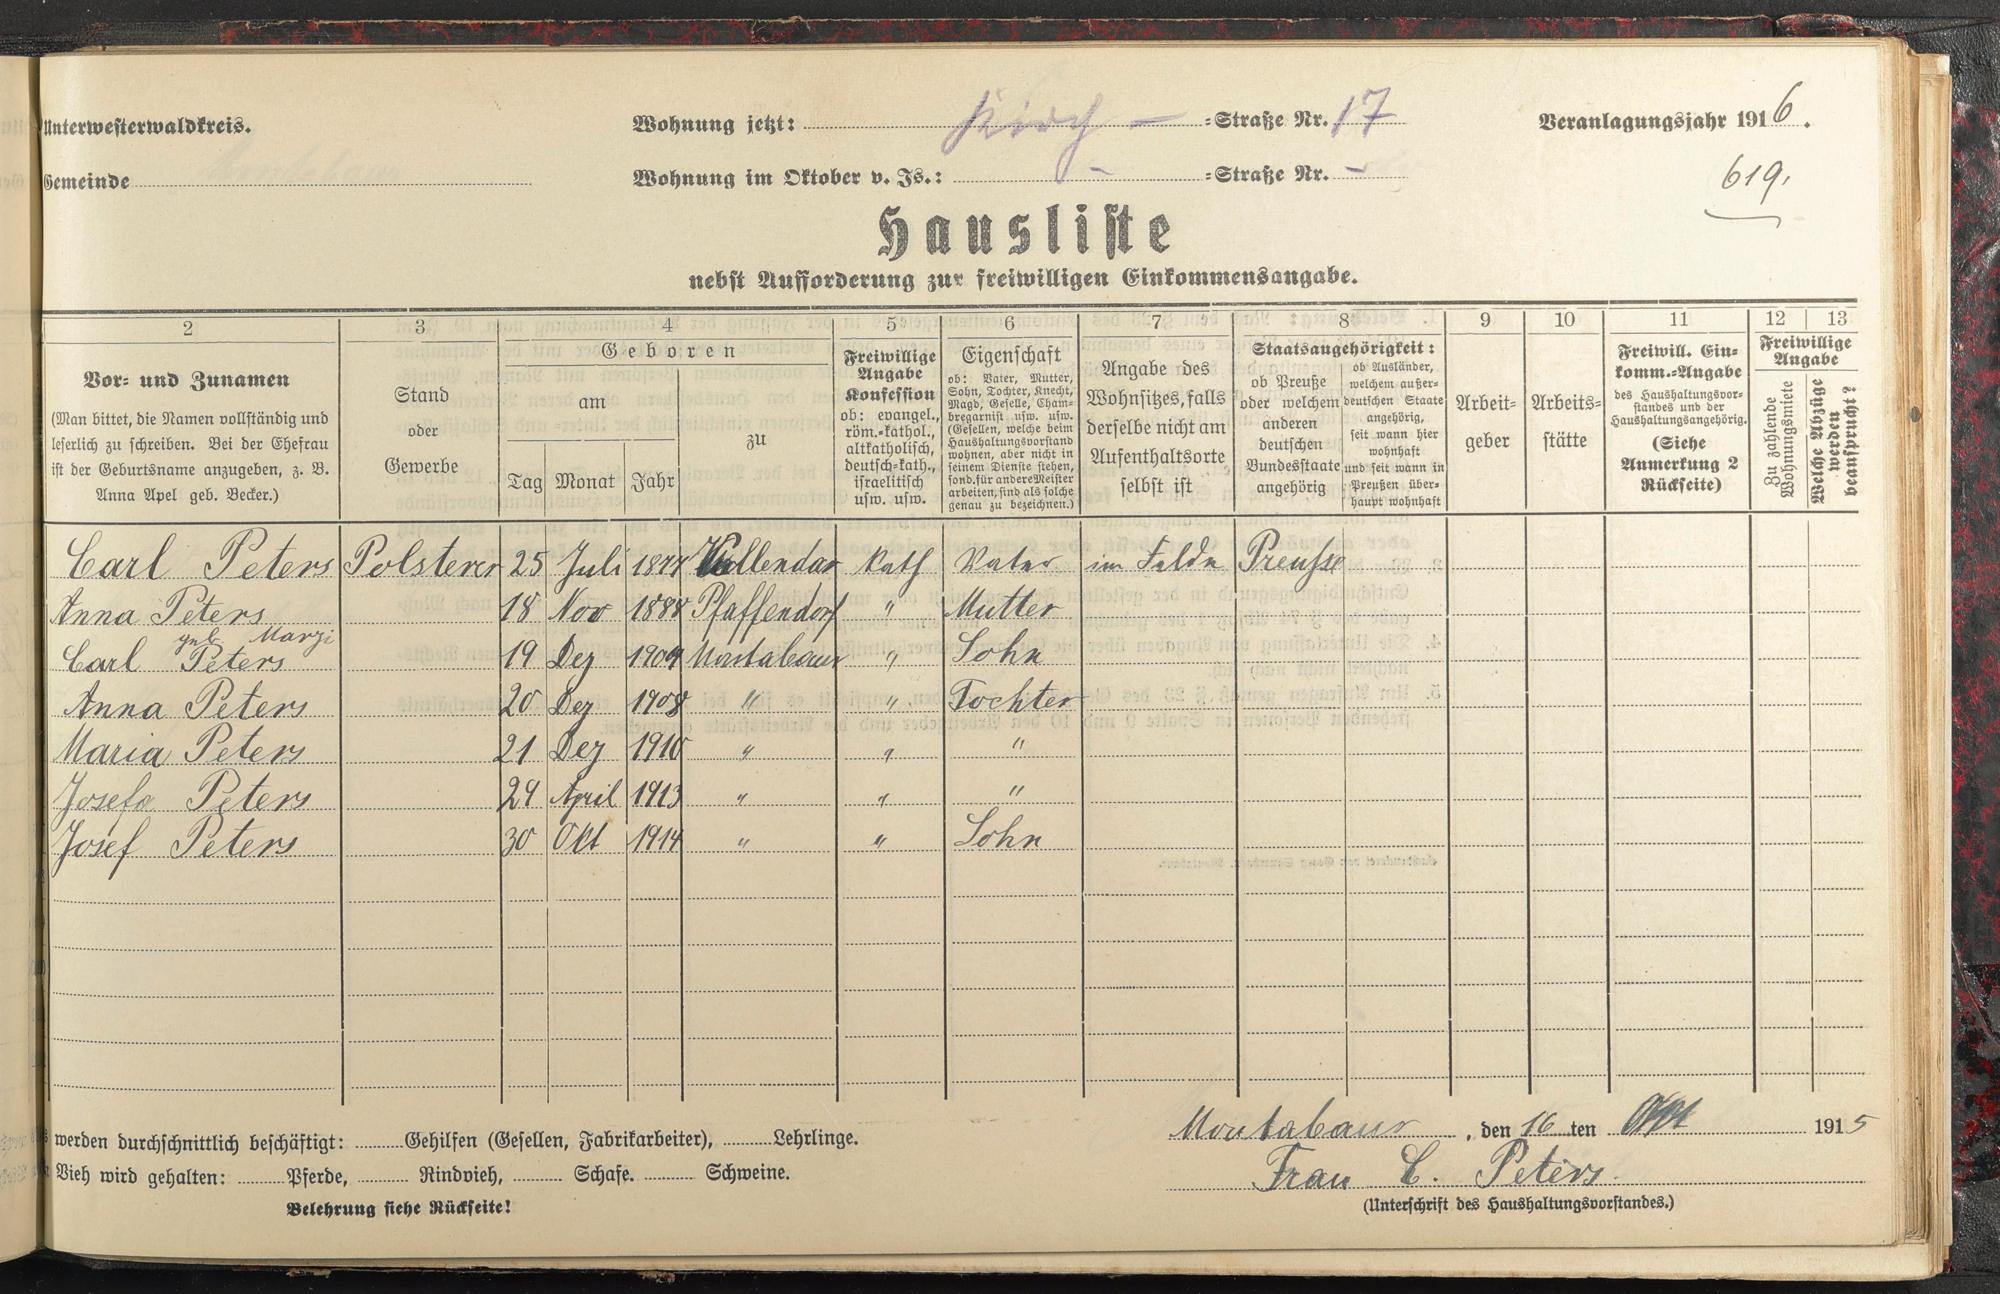 Unterwesterwaldkreis.
Wohnung jetzt: Kirch — =Straße Nr. 17
Veranlagungsjahr 1916.
Gemeinde Montabaur
Wohnung im Oktober v. Js.: - =Straße Nr. -
619.
Hausliste
nebst Aufforderung zur freiwilligen Einkommensangabe.
2 3 4 5 6 7 8 9 10 11 12 13
Vor- und Zunamen
(Man bittet, die Namen vollständig und
leserlich zu schreiben. Bei der Ehefrau
ist der Geburtsname anzugeben, z. B.
Anna Apel geb. Becker.)
Stand
oder
Gewerbe
Geboren
am
Tag Monat Jahr
zu
Freiwillige
Angabe
Konfession
ob: evangel.,
röm.-kathol.,
altkatholisch,
deutsch-kath.,
israelitisch
usw. usw.
Eigenschaft
ob: Vater, Mutter,
Sohn, Tochter, Knecht,
Magd, Geselle, Cham-
bregarnist usw. usw.
(Gesellen, welche beim
Haushaltungsvorstand
wohnen, aber nicht in
seinem Dienste stehen,
sond. für andere Meister
arbeiten, sind als solche
genau zu bezeichnen.)
Angabe des
Wohnsitzes, falls
derselbe nicht am
Aufenthaltsorte
selbst ist
Staatsangehörigkeit:
ob Preuße
oder welchem
anderen
deutschen
Bundesstaate
angehörig
ob Ausländer,
welchem außer-
deutschen Staate
angehörig,
seit wann hier
wohnhaft
und seit wann in
Preußen über-
haupt wohnhaft
Arbeit-
geber
Arbeits-
stätte
Freiwill. Ein-
komm.-Angabe
des Haushaltungsvor-
standes und der
Haushaltungsangehörig.
(Siehe
Anmerkung 2
Rückseite)
Freiwillige
Angabe
Zu zahlende
Wohnungsmiete
Welche Abzüge
werden
beansprucht?
Carl Peters Polsterer 25 Juli 1877 Vallendar kath Vater im Felde Preuße
Anna Peters 18 Nov 1888 Pfaffendorf " Mutter
geb Marzi
Carl Peters 19 Dez 1909 Montabaur " Sohn
Anna Peters 20 Dez 1908 " " Tochter
Maria Peters 21 Dez 1910 " " "
Josefa Peters 29 April 1913 " " "
Josef Peters 30 Okt 1914 " " Sohn
werden durchschnittlich beschäftigt: Gehilfen (Gesellen, Fabrikarbeiter), Lehrlinge.
Vieh wird gehalten: Pferde, Rindvieh, Schafe. Schweine.
Belehrung siehe Rückseite!
Montabaur, den 16 ten Okt 1915
Frau C. Peters.
(Unterschrift des Haushaltungsvorstandes.)